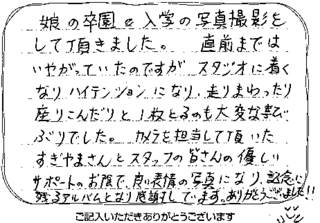 娘の卒園&入学の写真撮影を
して頂きました。 直前までは
いやがっていたのですが スタジオに着く
なりハイテンションになり、走りまわったり
座りこんだりと1枚とるのも大変な暴れ
ぶりでした。 カメラを担当して頂いた
すぎやまさんとスタッフの皆さんの優しい
サポートのお陰で、良い表情の写真になり、記念に
残るアルバムとなり感謝しています。ありがとうございました!!
ご記入いただきありがとうございます